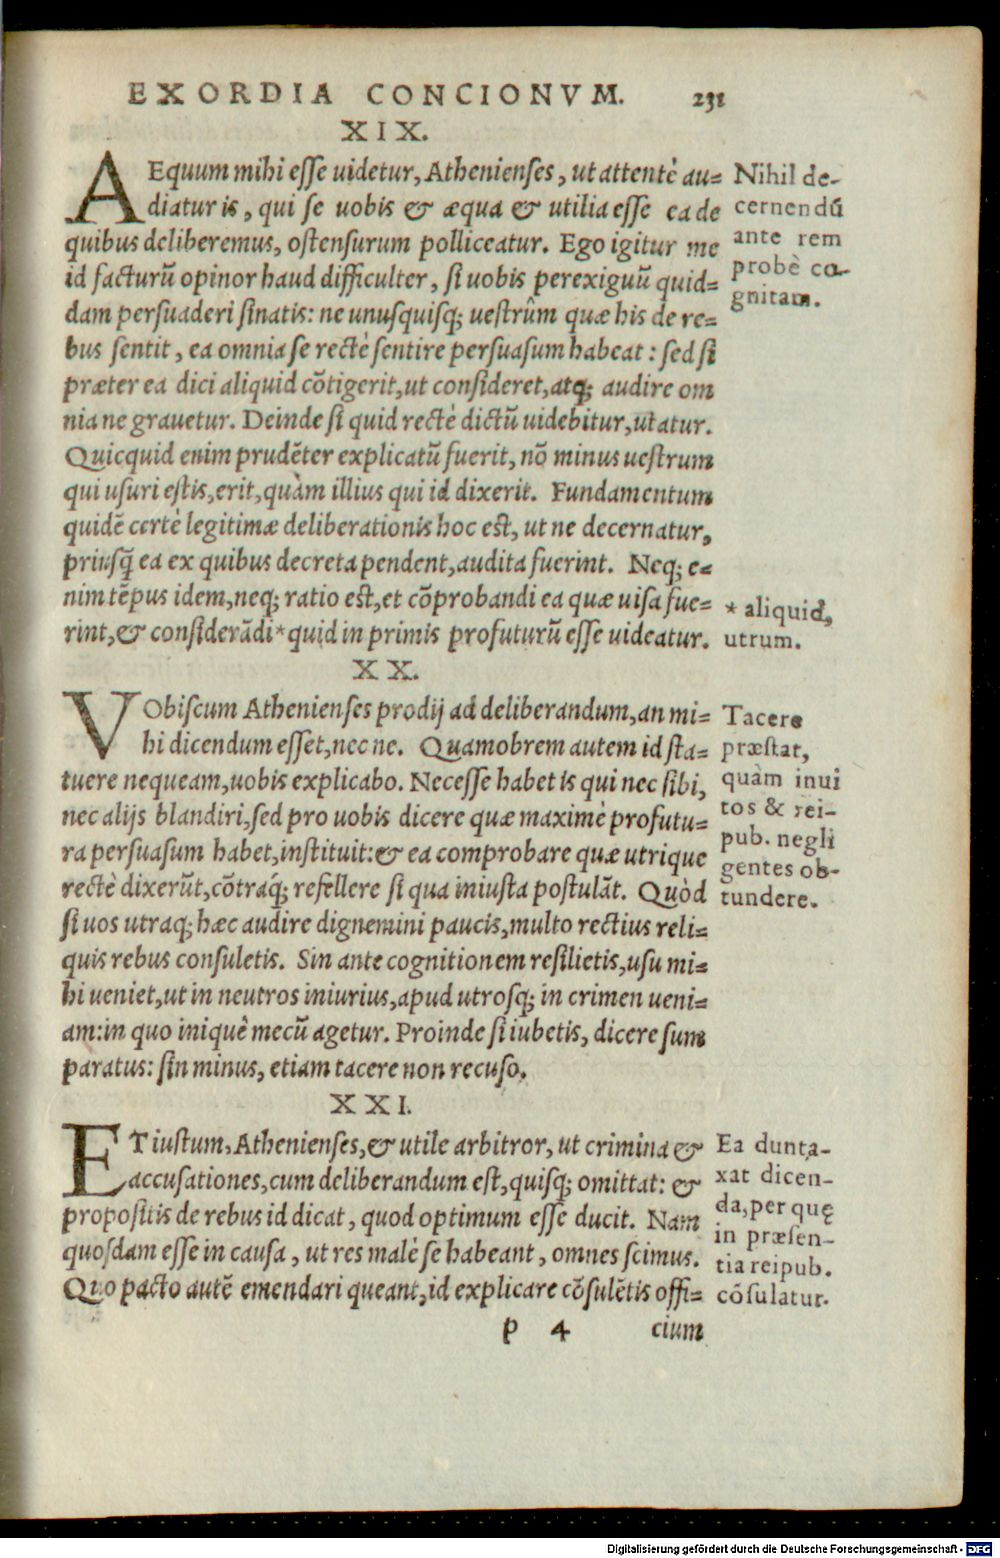 EXORDIA CONCIONVM. 231
XIX.
AEquum mihi esse uidetur, Athenienses, ut attentè au=
diatur is, qui se uobis & æqua & utilia esse ea de
quibus deliberemus, ostensurum polliceatur. Ego igitur me
id facturũ opinor haud difficulter, si uobis perexiguũ quid=
dam persuaderi sinatis: ne unusquisq; uestrûm quæ his de re=
bus sentit, ea omnia se rectè sentire persuasum habeat: sed si
præter ea dici aliquid cõtigerit, ut consideret, atq; audire om
nia ne grauetur. Deinde si quid rectè dictũ uidebitur, utatur.
Quicquid enim prudẽter explicatũ fuerit, nõ minus uestrum
qui usuri estis, erit, quàm illius qui id dixerit. Fundamentum
quidẽ certè legitimæ deliberationis hoc est, ut ne decernatur,
priusq̃ ea ex quibus decreta pendent, audita fuerint. Neq; e=
nim tẽpus idem, neq; ratio est, et cõprobandi ea quæ uisa fue=
rint, & considerãdi * quid in primis profuturũ esse uideatur.
Nihil de-
cernendũ
ante rem
probè co-
gnitam.
* aliquid,
utrum.
XX.
VObiscum Athenienses prodij ad deliberandum, an mi=
hi dicendum esset, nec ne. Quamobrem autem id sta=
tuere nequeam, uobis explicabo. Necesse habet is qui nec sibi,
nec alijs blandiri, sed pro uobis dicere quæ maximè profutu=
ra persuasum habet, instituit: & ea comprobare quæ utrique
rectè dixerũt, cõtraq́; refellere si qua iniusta postulãt. Quòd
si uos utraq; hæc audire dignemini paucis, multo rectius reli=
quis rebus consuletis. Sin ante cognitionem resilietis, usu mi=
hi ueniet, ut in neutros iniurius, apud utrosq; in crimen ueni=
am: in quo iniquè mecũ agetur. Proinde si iubetis, dicere sum
paratus: sin minus, etiam tacere non recuso.
Tacere
præstat,
quàm inui
tos & rei-
pub. negli
gentes ob-
tundere.
XXI.
ET iustum, Athenienses, & utile arbitror, ut crimina &
accusationes, cum deliberandum est, quisq; omittat: &
propositis de rebus id dicat, quod optimum esse ducit. Nam
quosdam esse in causa, ut res malè se habeant, omnes scimus.
Quo pacto autẽ emendari queant, id explicare cõsulẽtis offi=
Ea dunta-
xat dicen-
da, per quę
in præsen-
tia reipub.
cõsulatur.
p 4 cium
Digitalisierung gefördert durch die Deutsche Forschungsgemeinschaft - DFG